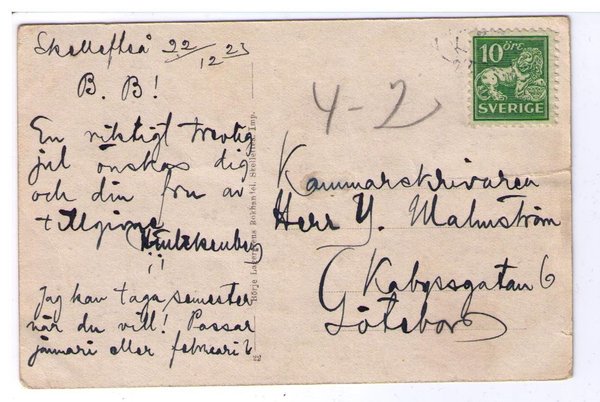 Skellefteå 22/12 23
B. B!
En riktigt trevlig
jul önskas dig
och din fru av
tillgivne
!!
Jag kan taga semester
när du vill! Passar
januari eller februari b
Börje Lagerströms Bokhandel, Skellefteå. Imp.
4-2
10 ÖRE
SVERIGE
Kammarskrivaren
Herr Y. Malmström
Kabyssgatan 6
Göteborg